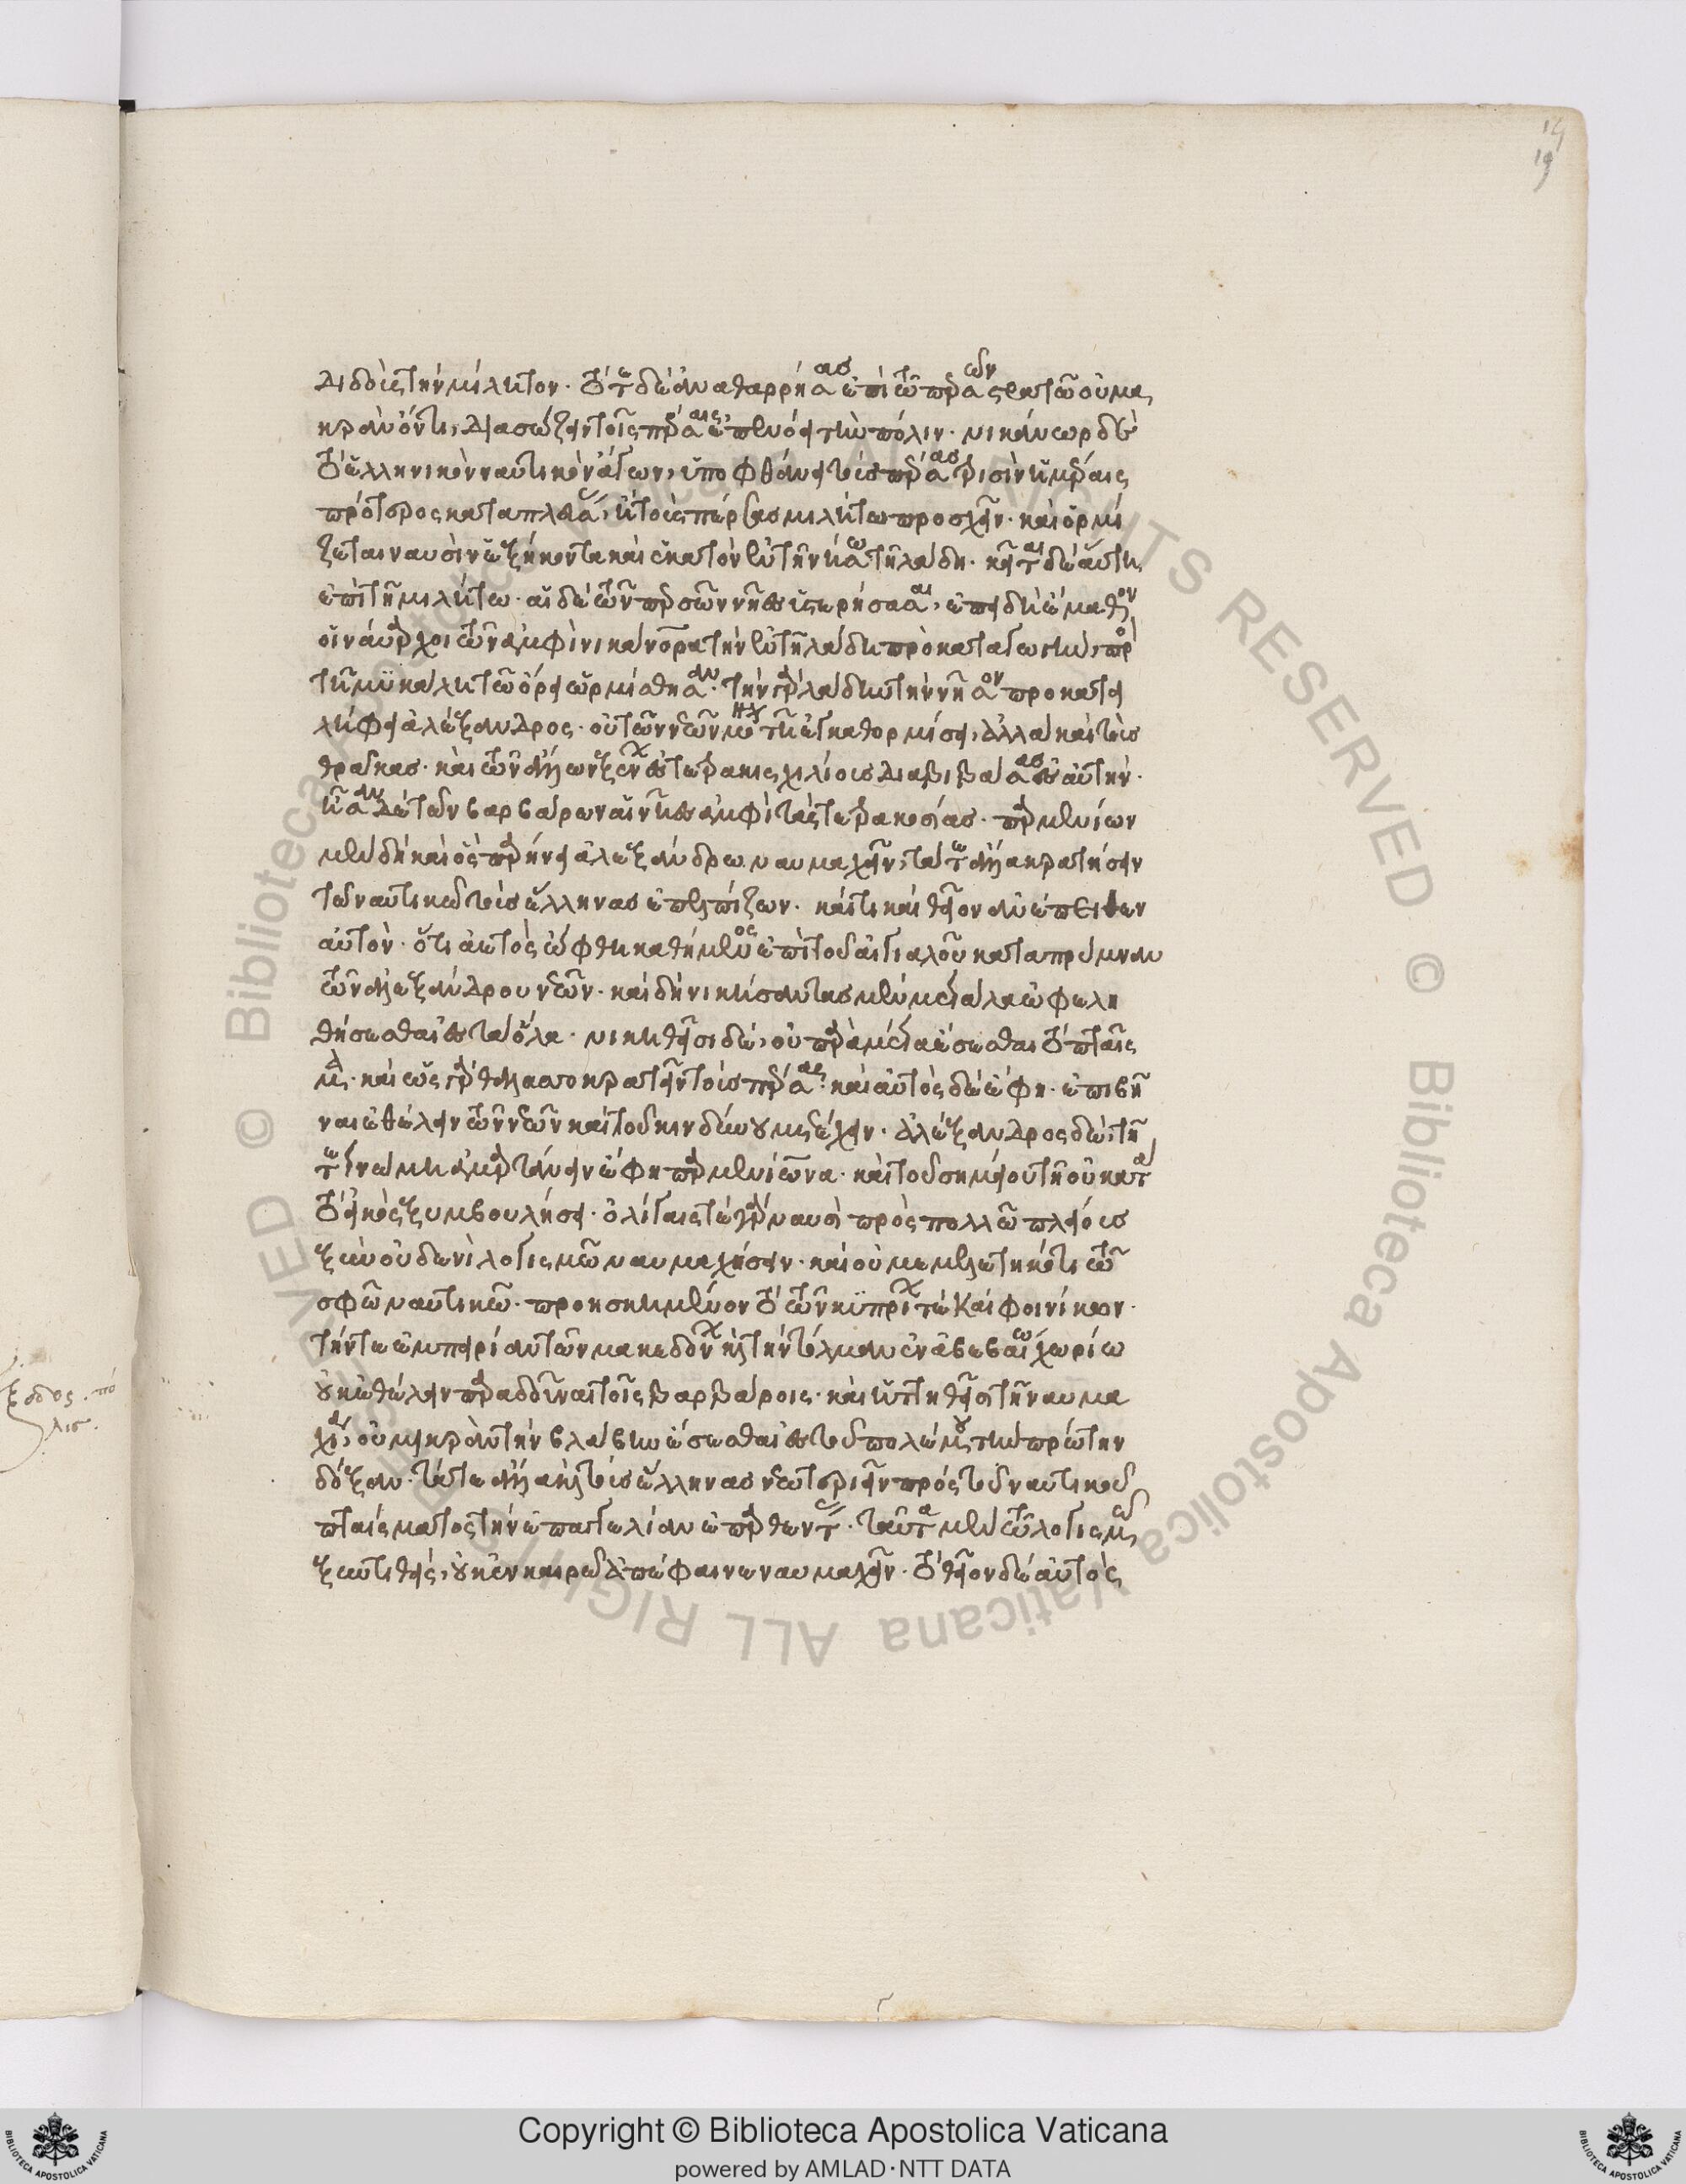 διδοὺς τὴν μίλητον. τότε δὲ ἀναθαρρήσας ἐπὶ τῶ περσῶν στρατῶ οὐ μα
κρὰν ὄντι, διασώζειν τοῖς πέρσαις ἐπενόει τὴν πόλιν. νικάνωρ δὲ
τὸ ἑλληνικὸν ναυτικὸν ἄγων, ὑποφθάνει τοὺς πέρσας τρισὶν ἡμέραις
πρότερος καταπλεύσας, ἢ τοὺς πέρσας μιλήτω προσχεῖν. καὶ ὁρμί
ζεται ναυσὶν ἑξήκοντα καὶ ἑκατὸν ἐν τῆ νήσω τῆ λάδη. κεῖται δὲ αὕτη
ἐπὶ τῆ μιλήτω. αἱ δὲ τῶν περσῶν νῆες ὑστερήσασαι, ἐπειδὴ ἔμαθον
οἱ ναύαρχοι τῶν ἀμφὶ νικάνορα τὴν ἐν τῆ λάδη προκαταγωγὴν, πρὸς
τῆ μυκάλη τῶ ὄρει ὡρμίσθησαν. τὴν γὰρ λάδην τὴν νῆσον προκατει
λήφει ἀλέξανδρος. οὐ τῶν νεῶν μόνον τῆ ἐγκαθορμίσει, ἀλλὰ καὶ τοὺς
θρᾶκας. καὶ τῶν ἄλλων ξένων ἐς τετρακισχιλίους διαβιβάσας ἐς αὐτήν.
ἦσαν δὲ τῶν βαρβάρων αἱ νῆες ἀμφὶ τὰς τετρακοσίας. παρμενίων
μὲν δὴ καὶ ὣς παρήνει ἀλεξάνδρω ναυμαχεῖν, τά τε ἄλλα κρατήσειν
τῶ ναυτικῶ τοὺς ἕλληνας ἐπελπίζων. καί τι καὶ θεῖον ἀνέπειθεν
αὐτὸν. ὅτι ἀετὸς ὤφθη καθήμενος ἐπὶ τοῦ αἰγιαλοῦ κατὰ πρύμναν
τῶν ἀλεξάνδρου νεῶν. καὶ δὴ νικήσαντας μὲν μεγάλα ὠφελη
θήσεσθαι ἐς τὰ ὅλα. νικηθεῖσι δὲ, οὐ παρὰ μέγα ἔσεσθαι τὸ πταῖσ
μα. καὶ ὣς γὰρ θαλασσοκρατεῖν τοὺς πέρσας. καὶ αὐτὸς δὲ ἔφη. ἐπιβῆ
ναι ἐθέλειν τῶν νεῶν καὶ τοῦ κινδύνου μετέχειν. ἀλέξανδρος δὲ τῆ
τε γνώμη ἁμαρτάνειν ἔφη παρμενίωνα. καὶ τοῦ σημείου τῆ οὐ κατὰ
τὸ εἰκὸς ξυμβουλήσει. ὀλίγαις τὲ γὰρ ναυσὶ πρὸς πολλῶ πλείους
ξὺν οὐδενὶ λογισμῶ ναυμαχήσειν. καὶ οὐ μεμελετηκότι τῶ
σφῶν ναυτικῶ. προησκημένον τὸ τῶν κυπρίων τὲ καὶ φοινίκων.
τήν τε ἐμπειρίαν τῶν μακεδόνων καὶ τὴν τόλμαν ἐν ἀβεβαίω χωρίω
οὐκ ἐθέλειν παραδοῦναι τοῖς βαρβάροις. καὶ ἡττηθεῖσι τῆ ναυμα
χία, οὐ μικρὰν τὴν βλάβην ἔσεσθαι ἐς τοῦ πολέμου τὴν πρώτην
δόξαν. τά τε ἄλλα καὶ τοὺς ἕλληνας νεωτεριεῖν πρὸς τοῦ ναυτικοῦ
πταίσματος τὴν ἐπαγγελίαν ἐπαρθέντας. ταῦτα μὲν τῶ λογισμῶ
ξυντιθεὶς, οὐκ ἐν καιρῶ ἀπέφαινεν ναυμαχεῖν. τὸ θεῖον δὲ αὐτὸς
Copyright © Biblioteca Apostolica Vaticana
powered by AMLAD·NTT DATA